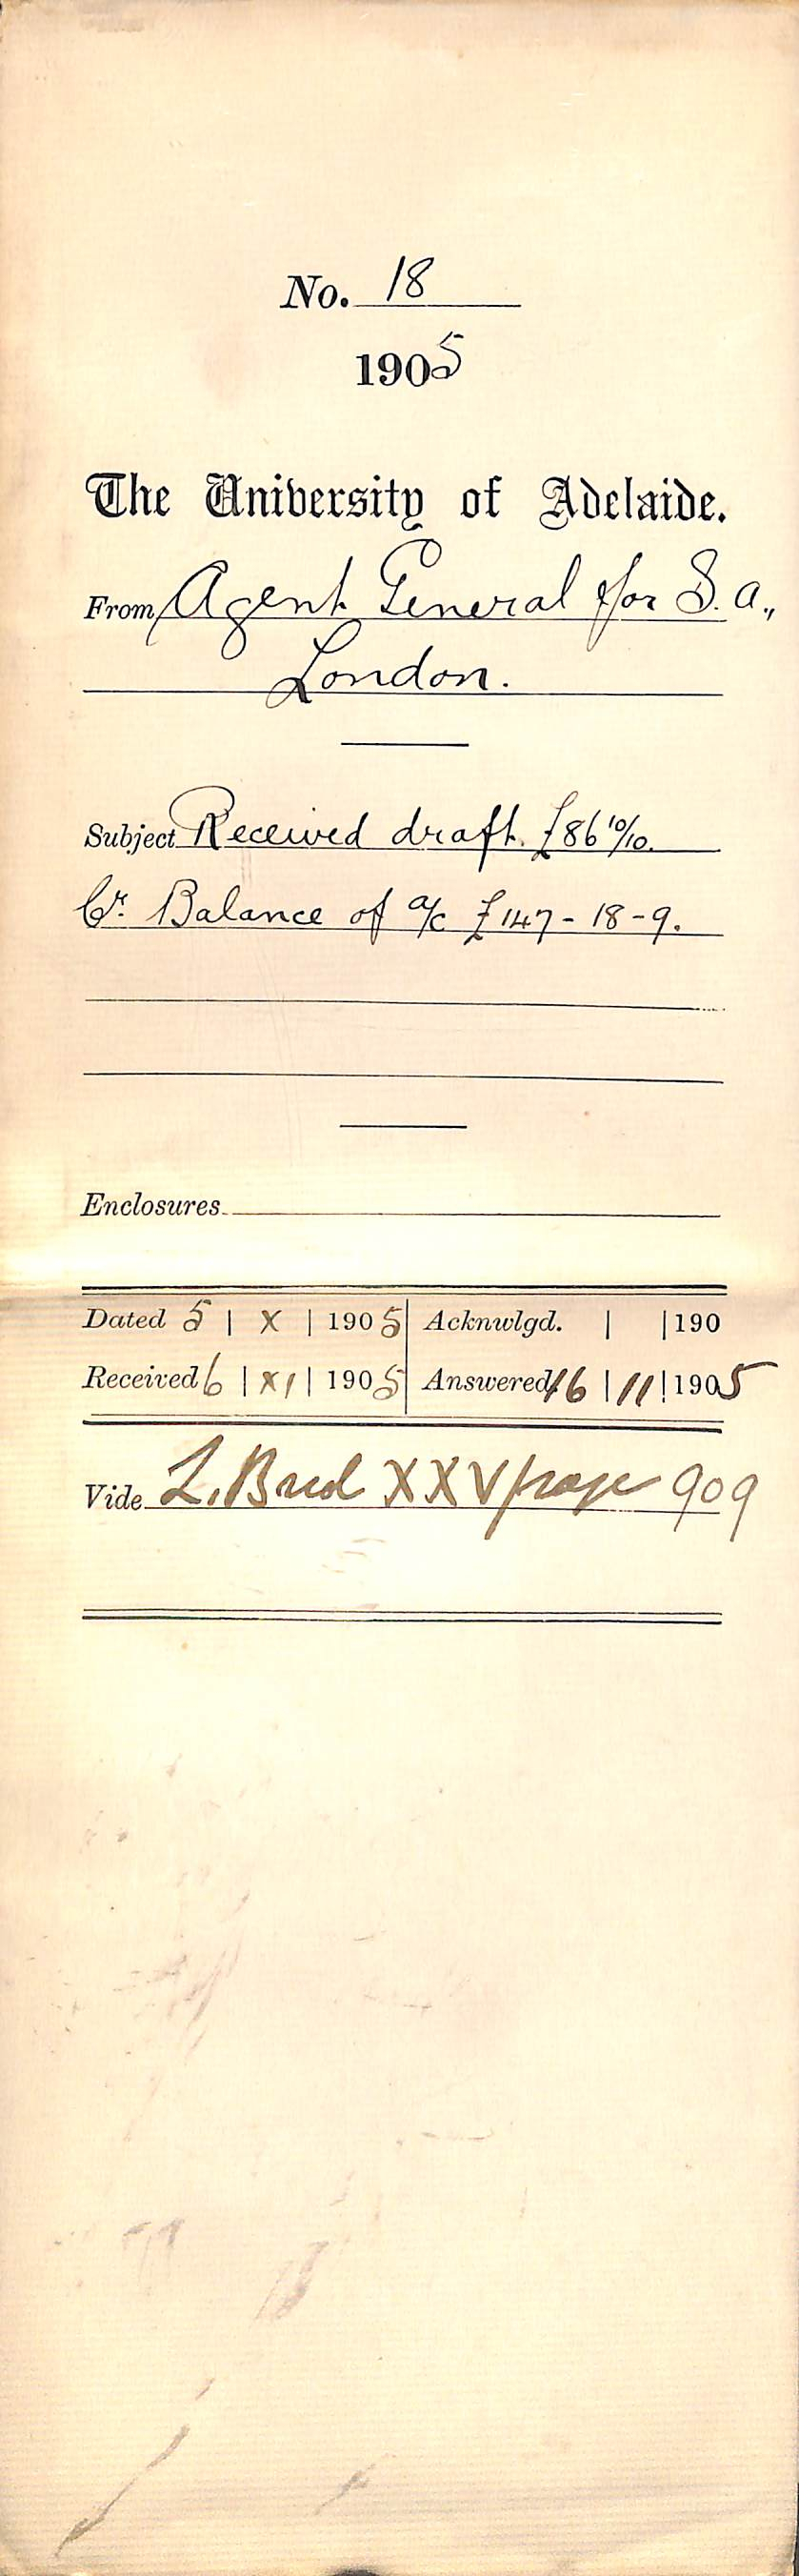 No. 18
1905
The University of Adelaide.
From Agent General for S.A.,
London.
Subject Received draft. £86 10/10.
Cr. Balance of a/c £147-18-9.
Enclosures
Dated 5 | X | 1905 Acknwlgd. | | 190
Received 6 | XI | 1905 Answered 16 | 11 | 1905
Vide L. XXV page 909